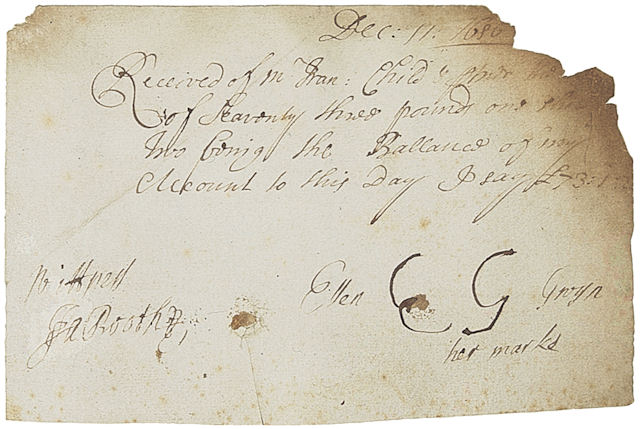 Dec: 11: 1686
Received of Mr Fran: Child ye
of Seaventy three pounds one
two being the Ballance of my
Account to this Day I say £73: 1
Wittness
Ja Booth
Ellen E G Gwyn
her marke